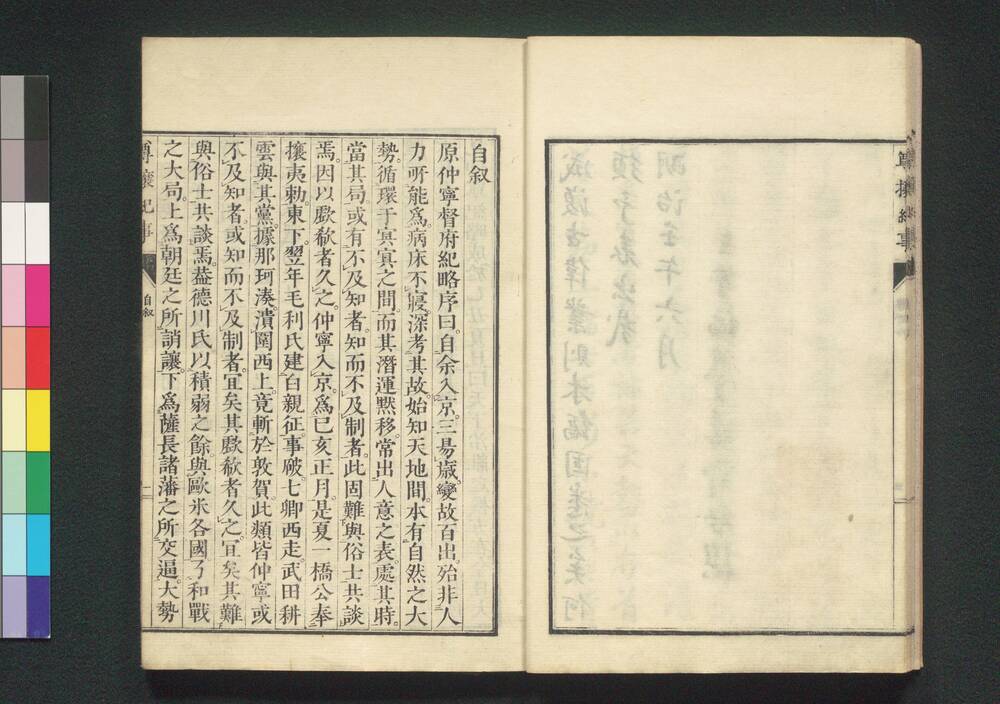 自叙
原仲寧督府紀略序曰。自余入京。三易歲。變故百出。殆非人
力所能爲。病床不寢。深考其故。始知天地間。本有自然之大
勢。循環于冥冥之間。而其潛運黙移。常出人意之表。處其時。
當其局。或有不及知者。知而不及制者。此固難與俗士共談
焉。因以歔欷者久之。仲寧入京。爲巳亥正月。是夏一橋公奉
攘夷勅。東下。翌年毛利氏建白親征。事敗。七卿西走。武田耕
雲與其黨。據那珂湊。潰圍西上。竟斬於敦賀。此類皆仲寧或
不及知者。或知而不及制者。宜矣其歔欷者久之。宜矣其難
與俗士共談焉。葢德川氏以積弱之餘。與歐米各國了和戰
之大局。上爲朝廷之所誚讓。下爲薩長諸藩之所交逼。大勢
尊攘紀事
自叙